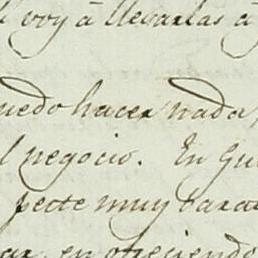 voy á llevarlas á
uedo hacer nada
l negocio. En Gu
pecte muy barat
ar, en ofreciendo